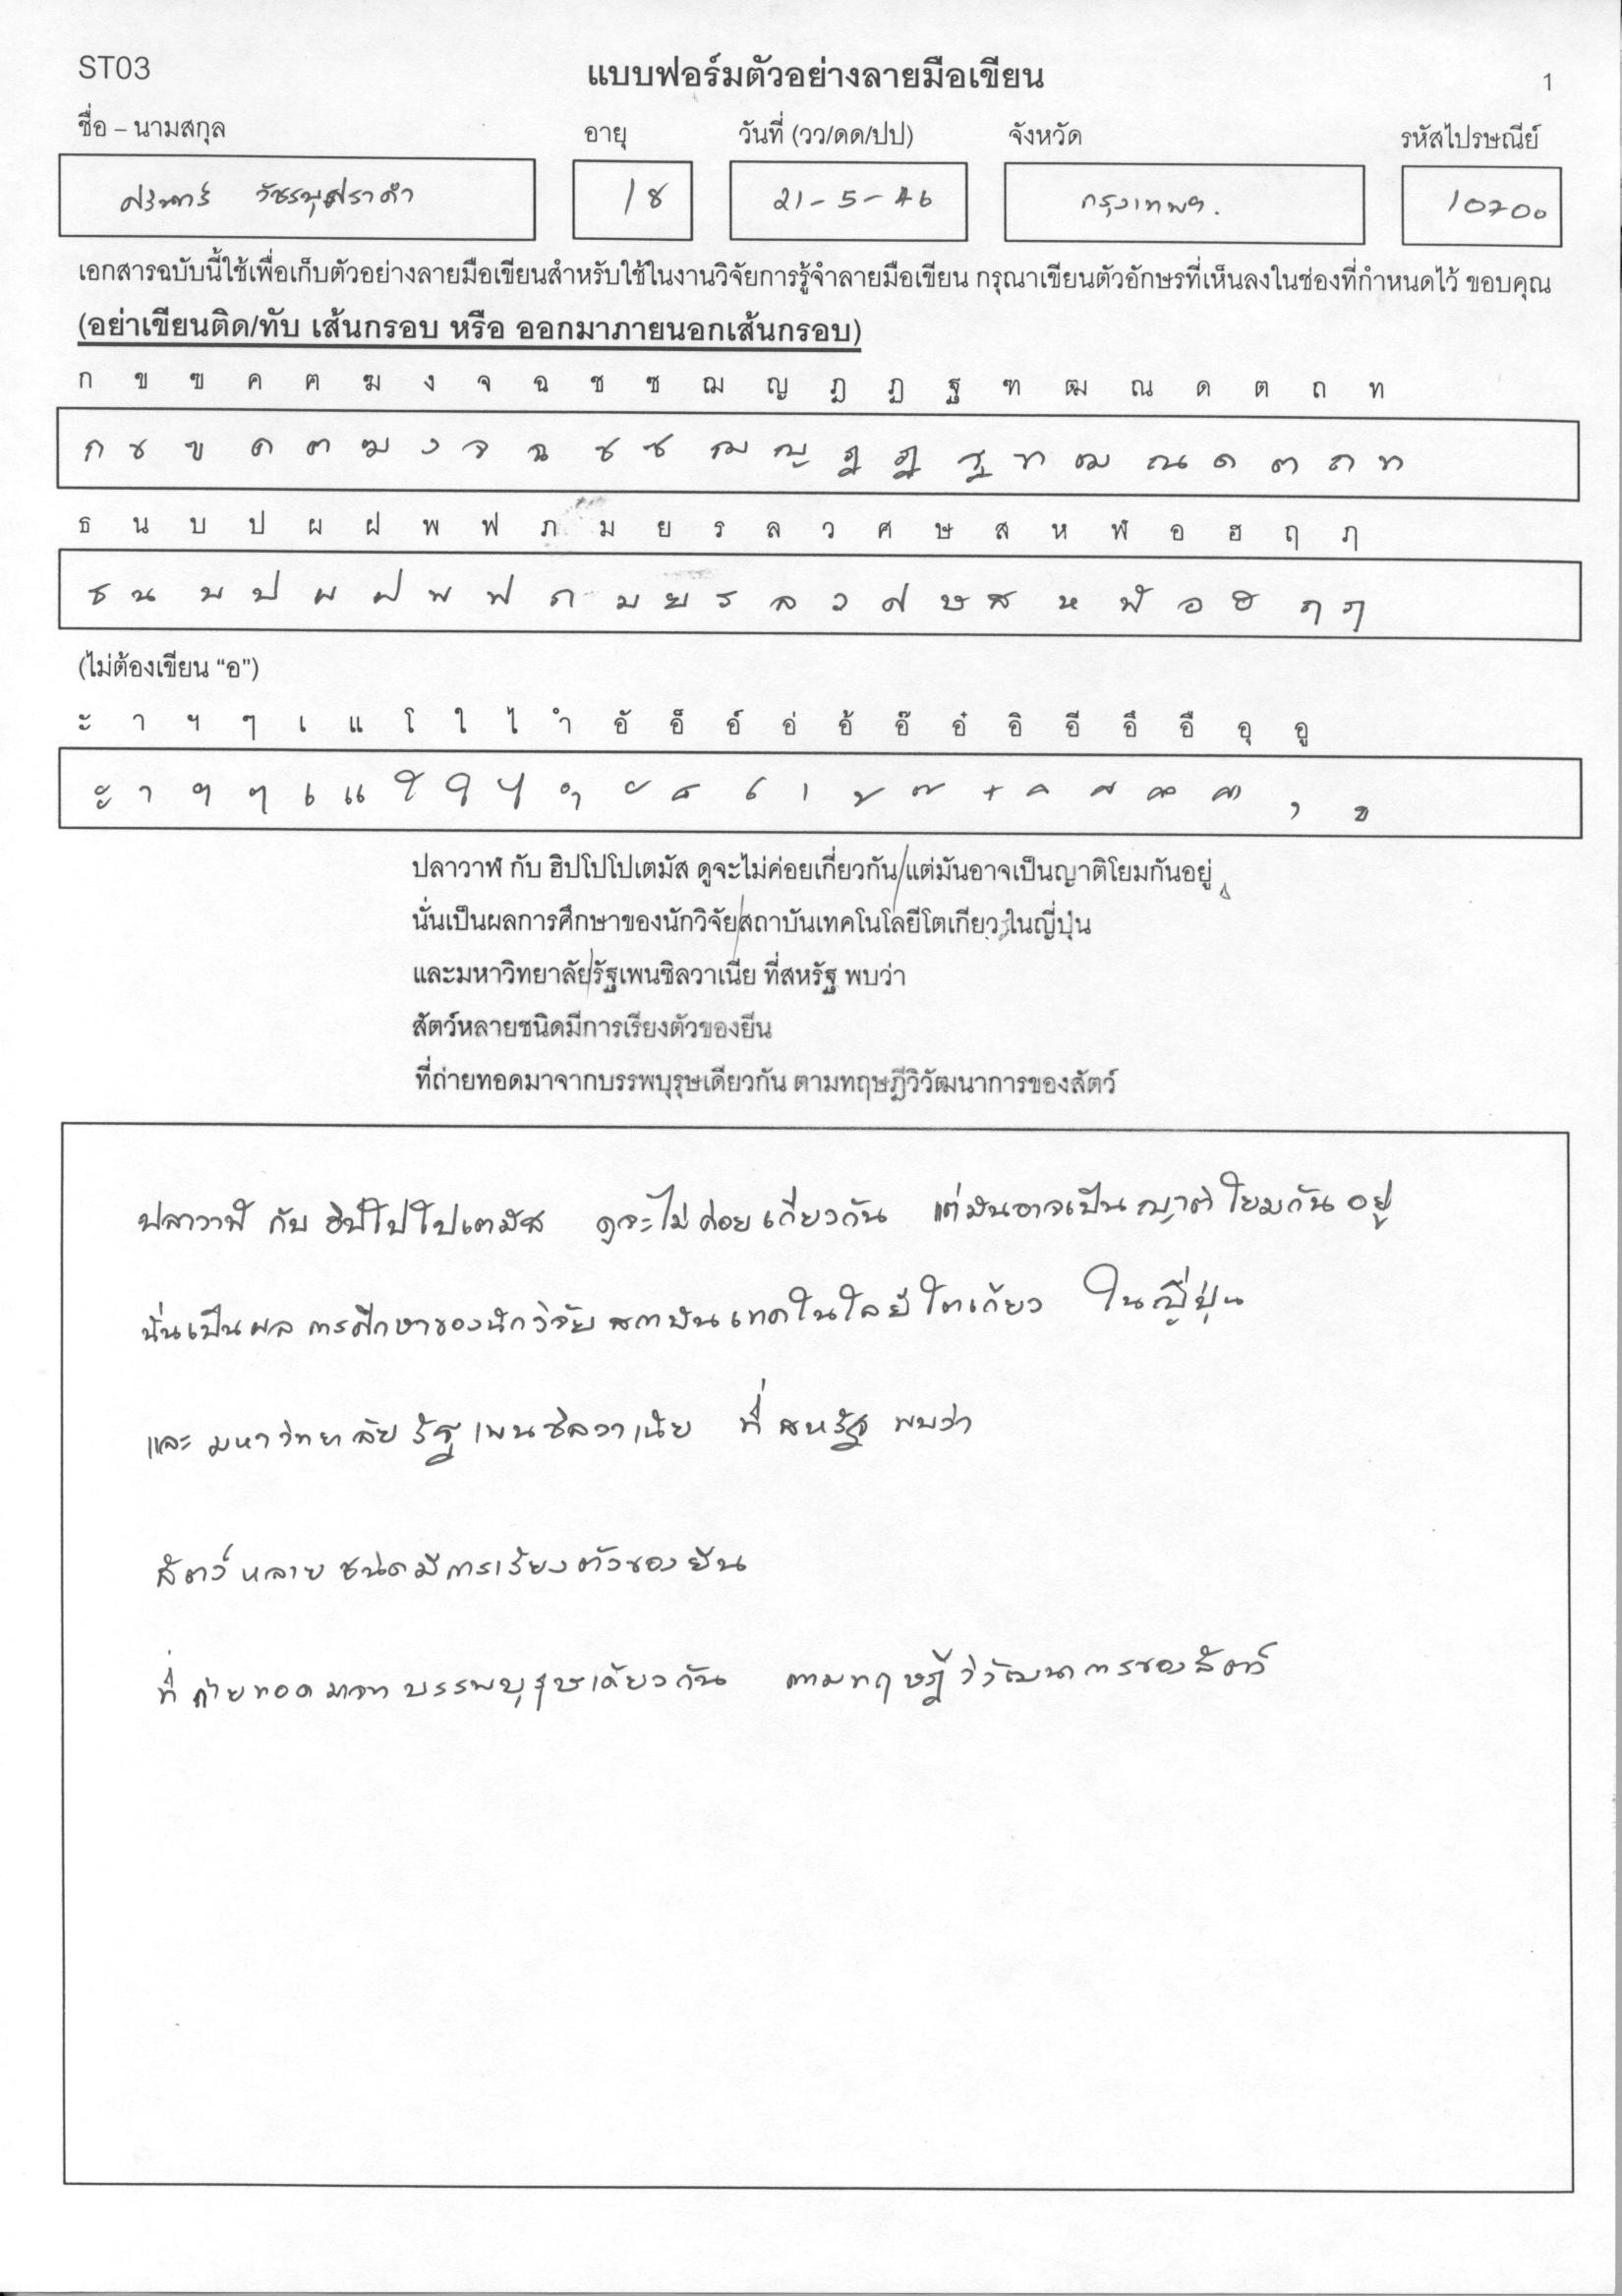 ST03
แบบฟอร์มตัวอย่างลายมือเขียน
1
ชื่อ – นามสกุล
อายุ
วันที่ (วว/ดด/ปป)
จังหวัด
รหัสไปรษณีย์
18
21-5-46
กรุงเทพฯ.
10700
เอกสารฉบับนี้ใช้เพื่อเก็บตัวอย่างลายมือเขียนสำหรับใช้ในงานวิจัยการรู้จำลายมือเขียน กรุณาเขียนตัวอักษรที่เห็นลงในช่องที่กำหนดไว้ ขอบคุณ
(อย่าเขียนติด/ทับ เส้นกรอบ หรือ ออกมาภายนอกเส้นกรอบ)
ก ข ฃ ค ฅ ฆ ง จ ฉ ช ซ ฌ ญ ฎ ฏ ฐ ฑ ฒ ณ ด ต ถ ท
ก ข ฃ ค ฅ ฆ ง จ ฉ ช ซ ฌ ญ ฎ ฏ ฐ ฑ ฒ ณ ด ต ถ ท
ธ น บ ป ผ ฝ พ ฟ ภ ม ย ร ล ว ศ ษ ส ห ฬ อ ฮ ฤ ฦ
ธ น บ ป ผ ฝ พ ฟ ภ ม ย ร ล ว ศ ษ ส ห ฬ อ ฮ ฤ ฦ
(ไม่ต้องเขียน “อ”)
ะ า ฯ ๆ เ แ โ ใ ไ ำ อั อ็ อ์ อ่ อ้ อ๊ อ๋ อิ อี อึ อื อุ อู
ะ า ฯ ๆ เ แ โ ใ ไ ำ ั ็ ์ ่ ้ ๊ ๋ ิ ี ึ ื ุ ู
ปลาวาฬ กับ ฮิปโปโปเตมัส ดูจะไม่ค่อยเกี่ยวกัน/แต่มันอาจเป็นญาติโยมกันอยู่
นั่นเป็นผลการศึกษาของนักวิจัย/สถาบันเทคโนโลยีโตเกียว ในญี่ปุ่น
และมหาวิทยาลัย/รัฐเพนซิลวาเนีย ที่สหรัฐ พบว่า
สัตว์หลายชนิดมีการเรียงตัวของยีน
ที่ถ่ายทอดมาจากบรรพบุรุษเดียวกัน ตามทฤษฎีวิวัฒนาการของสัตว์
ปลาวาฬ กับ ฮิปโปโปเตมัส ดูจะไม่ค่อยเกี่ยวกัน แต่มันอาจเป็นญาติโยมกันอยู่
นั่นเป็นผลการศึกษาของนักวิจัยสถาบันเทคโนโลยีโตเกียว ในญี่ปุ่น
และมหาวิทยาลัยรัฐเพนซิลวาเนีย ที่สหรัฐ พบว่า
สัตว์หลายชนิดมีการเรียงตัวของยีน
ที่ถ่ายทอดมาจากบรรพบุรุษเดียวกัน ตามทฤษฎีวิวัฒนาการของสัตว์